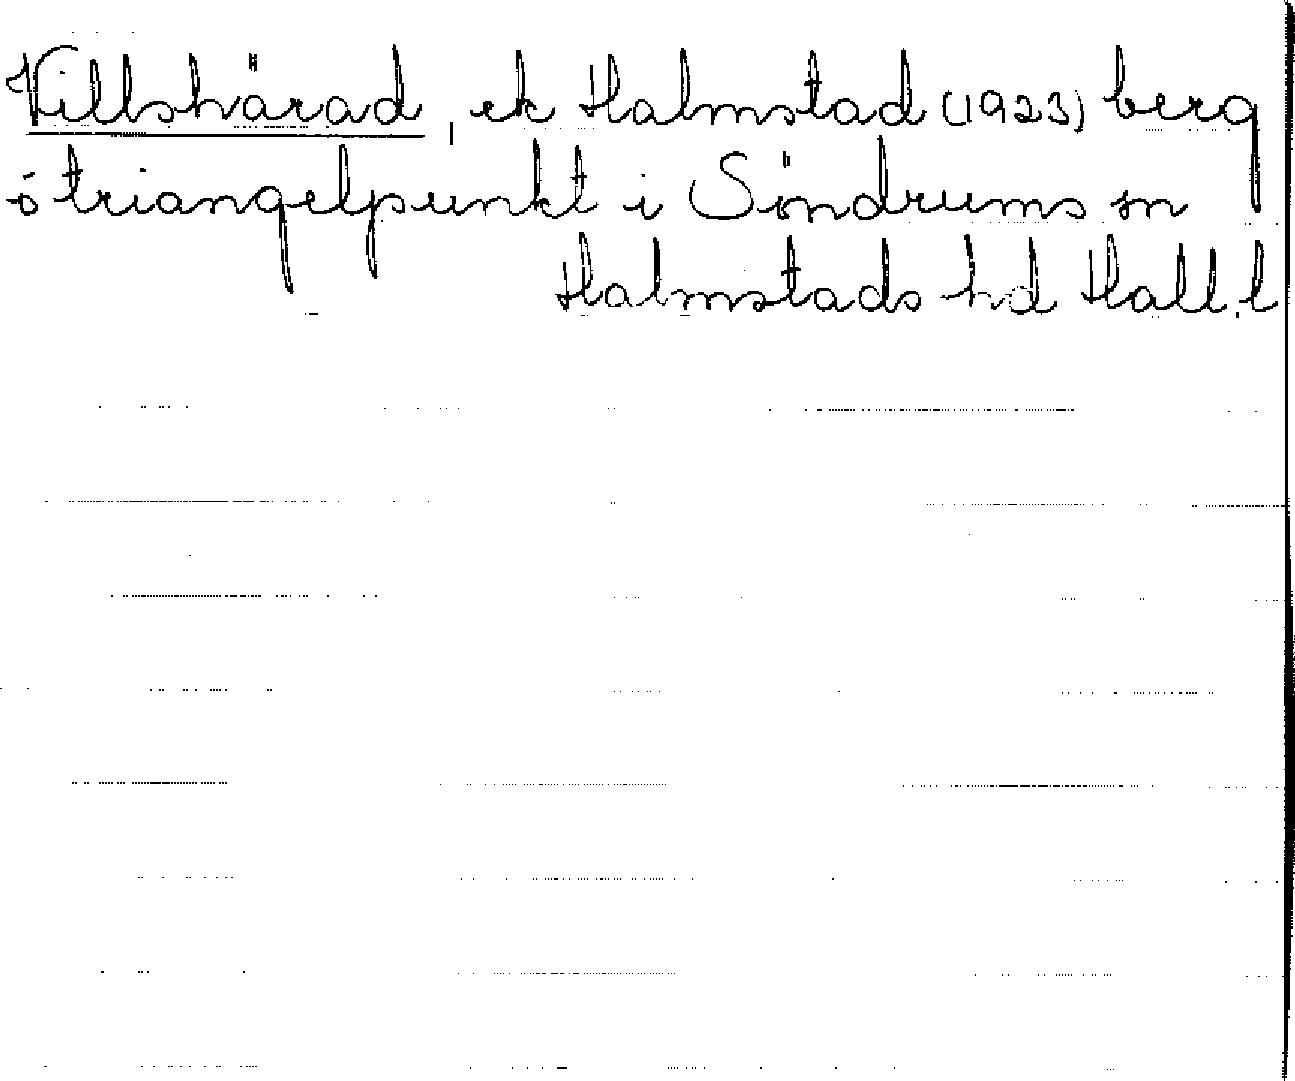 Villshärad, ek Halmstad (1923) berg
o triangelpunkt i Söndrums sn
Halmstads hd Hall.l